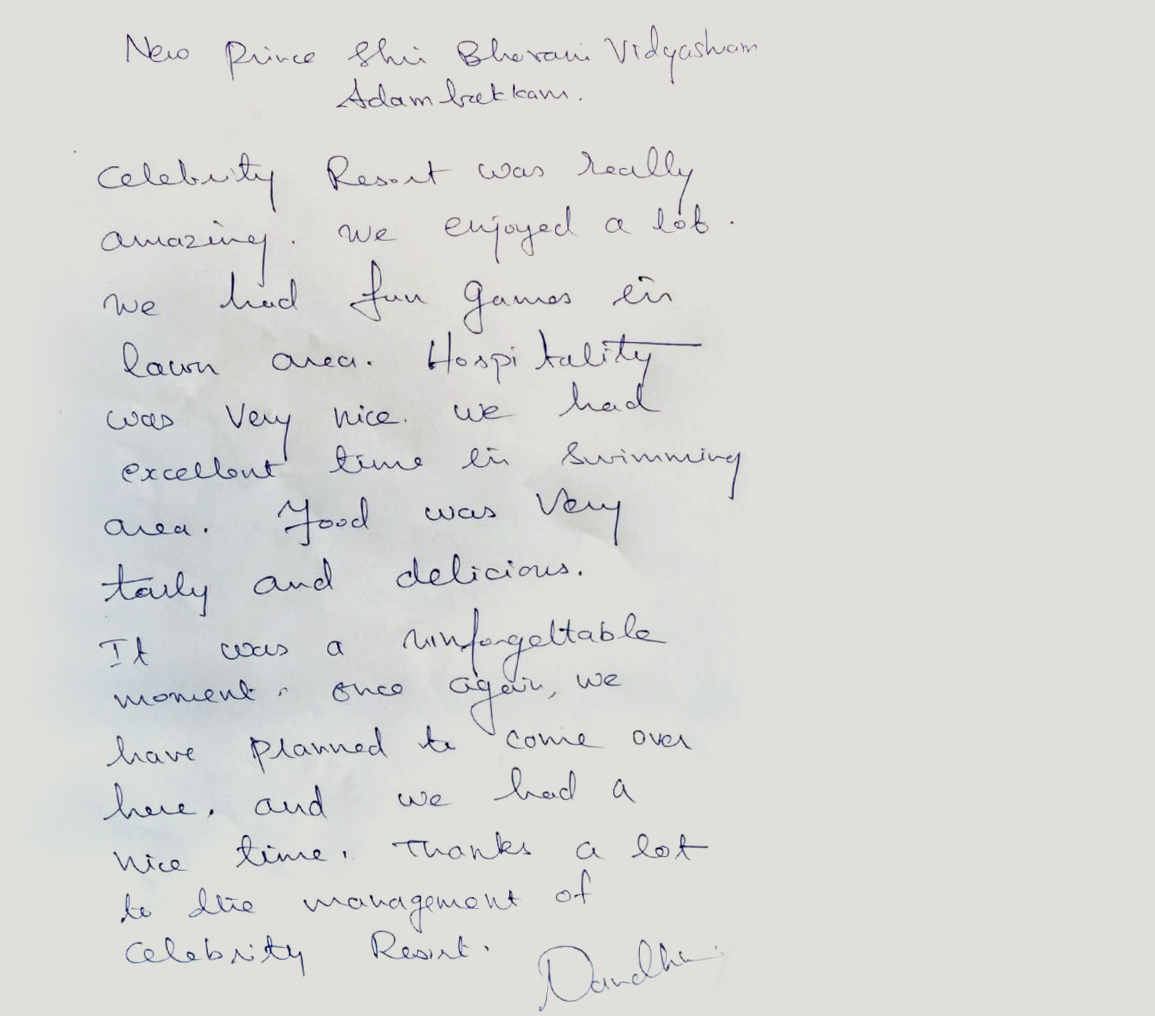 New Prince Shri Bhavani Vidyashram
Adambakkam.
Celebrity Resort was really
amazing. We enjoyed a lot.
We had fun games in
lawn area. Hospitality
was very nice. We had
excellent time in swimming
area. Food was very
tasty and delicious.
It was a unforgettable
moment. Once again, we
have planned to come over
here. and we had a
nice time. Thanks a lot
to the management of
Celebrity Resort.